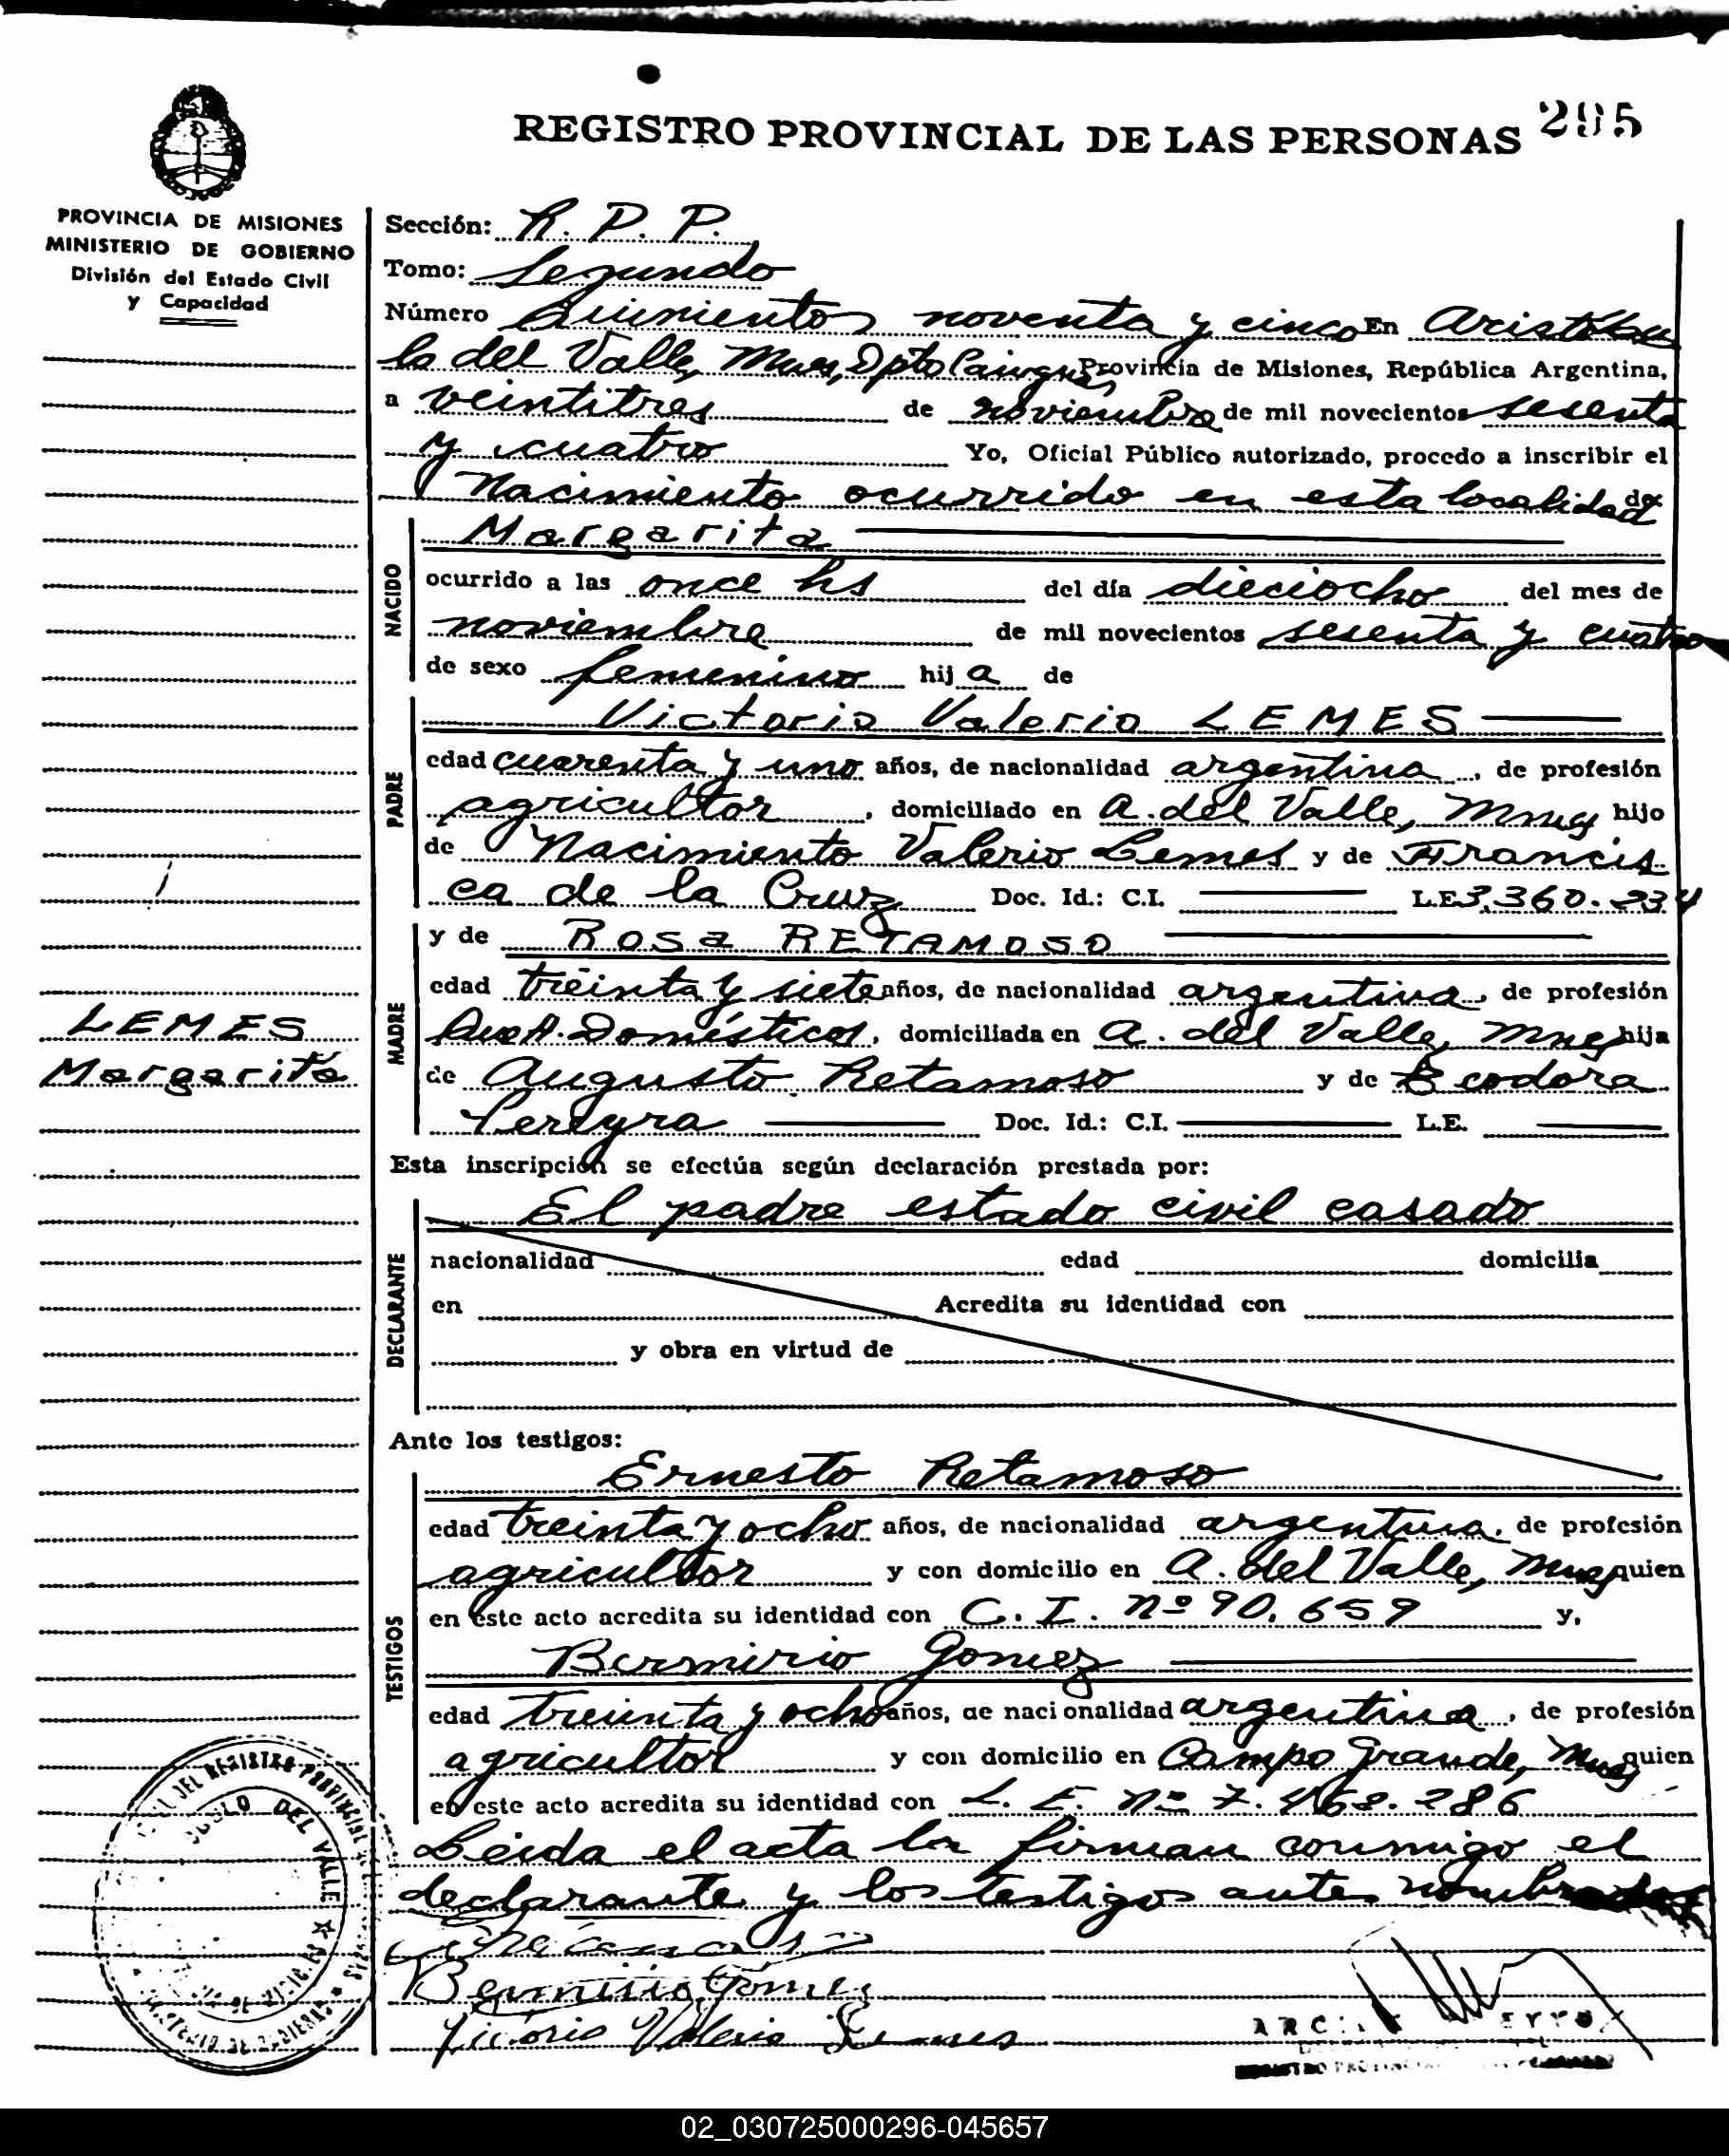 REGISTRO PROVINCIAL DE LAS PERSONAS 295
PROVINCIA DE MISIONES
MINISTERIO DE GOBIERNO
División del Estado Civil
y Capacidad
Sección: R. P. P.
Tomo: Segundo
Número Quinientos noventa y cinco En Aristóbu
lo del Valle, Mnes, Dpto Cainguás, Provincia de Misiones, República Argentina,
a veintitres de noviembre de mil novecientos sesenta
y cuatro Yo, Oficial Público autorizado, procedo a inscribir el
Nacimiento ocurrido en esta localidad de:
NACIDO
Margarita
ocurrido a las once hs del día dieciocho del mes de
noviembre de mil novecientos sesenta y cuatro
de sexo femenino hija de
PADRE
Victorio Valerio LEMES
edad cuarenta y uno años, de nacionalidad argentina, de profesión
agricultor, domiciliado en A. del Valle, Mnes hijo
de Nacimiento Valerio Lemes y de Francis
ca de la Cruz Doc. Id.: C.I. L.E. 3.360.234
MADRE
y de Rosa RETAMOSO
edad treinta y siete años, de nacionalidad argentina, de profesión
Domésticos, domiciliada en A. del Valle, Mnes hija
de Augusto Retamoso y de
Pereyra Doc. Id.: C.I. L.E.
LEMES
Margarita
Esta inscripción se efectúa según declaración prestada por:
DECLARANTE
El padre estado civil casado
nacionalidad edad domicilia
en Acredita su identidad con
y obra en virtud de
Ante los testigos:
TESTIGOS
Ernesto Retamoso
edad treinta y ocho años, de nacionalidad argentina, de profesión
agricultor y con domicilio en A. del Valle, Mnes quien
en este acto acredita su identidad con C. I. nº 90.659 y,
Bermirio Gomez
edad treinta y ocho años, de nacionalidad argentina, de profesión
agricultor y con domicilio en Campo Grande, Mnes quien
en este acto acredita su identidad con L. E. nº 7.468.286
Leida el acta la firman conmigo el
declarante y los testigos antes nombrados
Bermirio Gomez
Victorio Valerio Lemes
DEL REGISTRO PROVINCIAL
DEL VALLE
02_030725000296-045657